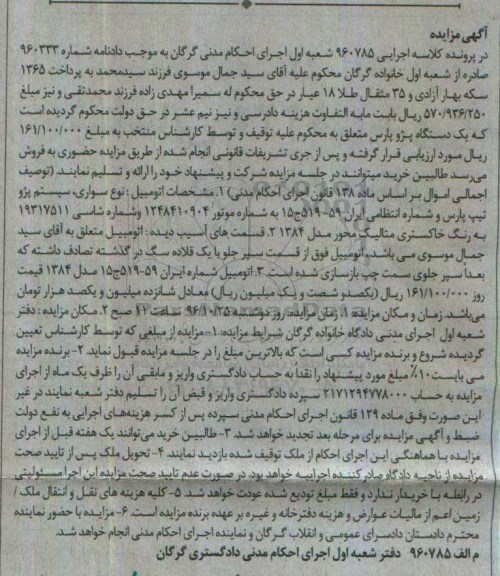 آگهی مزایده
در پرونده کلاسه اجرایی ۹۶۰۷۸۵ شعبه اول اجرای احکام مدنی گرگان به موجب دادنامه شماره ۹۶۰۳۳۳
صادره از شعبه اول خانواده گرگان محکوم علیه آقای سید جمال موسوی فرزند سیدمحمد به پرداخت ۱۳۶۵
سکه بهار آزادی و ۳۵ مثقال طلا ۱۸ عیار در حق محکوم له سمیرا مهدی زاده فرزند محمدتقی و نیز مبلغ
۵۷۰/۹۳۶/۲۵۰ ریال بابت مابه التفاوت هزینه دادرسی و نیز نیم عشر در حق دولت محکوم گردیده است
که یک دستگاه پژو پارس متعلق به محکوم علیه توقیف و توسط کارشناس منتخب به مبلغ ۱۶۱/۱۰۰/۰۰۰
ریال مورد ارزیابی قرار گرفته و پس از جری تشریفات قانونی انجام شده از طریق مزایده حضوری به فروش
می‌رسد طالبین خرید میتوانند در جلسه مزایده شرکت و پیشنهاد خود را ارائه و تسلیم نمایند. (توصیف
اجمالی اموال بر اساس ماده ۱۳۸ قانون اجرای احکام مدنی) ۱. مشخصات اتومبیل : نوع سواری، سیستم پژو
تیپ پارس و شماره انتظامی ایران ۵۹-۵۱۹ج۱۵ به شماره موتور ۱۲۴۸۴۱۰۹۰۴ وشماره شاسی ۱۹۳۱۷۵۱۱
به رنگ خاکستری متالیک محور مدل ۱۳۸۴ ۲. قسمت های آسیب دیده : اتومبیل متعلق به آقای سید
جمال موسوی می باشد. اتومبیل فوق از قسمت سپر جلو با یک قلاده سگ در گذشته تصادف داشته که
بعداً سپر جلوی سمت چپ بازسازی شده است. ۳. اتومبیل شماره ایران ۵۹-۵۱۹ج۱۵ مدل ۱۳۸۴ قیمت
روز ۱۶۱/۱۰۰/۰۰۰ ریال (یکصدو شصت و یک میلیون ریال) معادل شانزده میلیون و یکصد هزار تومان
می‌باشد. زمان و مکان مزایده: ۱. زمان مزایده: روز دوشنبه ۹۶/۱۰/۲۵ ساعت ۱۱ صبح ۲. مکان مزایده : دفتر
شعبه اول اجرای مدنی دادگاه خانواده گرگان شرایط مزایده: ۱- مزایده از مبلغی که توسط کارشناس تعیین
گردیده شروع و برنده مزایده کسی است که بالاترین مبلغ را در جلسه مزایده قبول نماید. ۲- برنده مزایده
می بایست ۱۰٪ مبلغ مورد پیشنهاد را نقداً به حساب دادگستری واریز و مابقی آن را ظرف یک ماه از اجرای
مزایده به حساب ۲۱۷۱۲۹۴۷۷۸۰۰۰ سپرده دادگستری واریز و قبض آن را تسلیم دفتر شعبه نمایند در غیر
این صورت وفق ماده ۱۲۹ قانون اجرای احکام مدنی سپرده پس از کسر هزینه‌های اجرایی به نفع دولت
ضبط و آگهی مزایده برای مرحله بعد تجدید خواهد شد. ۳- طالبین خرید می‌توانند یک هفته قبل از اجرای
مزایده با هماهنگی این اجرای احکام از ملک توقیف شده بازدید نمایند. ۴- تحویل ملک پس از تایید صحت
مزایده از ناحیه دادگاه صادر کننده اجراییه خواهد بود. در صورت عدم تایید صحت مزایده این اجرا مسئولیتی
در رابطه با خریدار ندارد و فقط مبلغ تودیع شده عودت خواهد شد. ۵- کلیه هزینه های نقل و انتقال ملک /
زمین اعم از مالیات عوارض و هزینه دفترخانه و غیره بر عهده برنده مزایده است. ۶- مزایده با حضور نماینده
محترم دادستان دادسرای عمومی و انقلاب گرگان و نماینده اجرای احکام مدنی انجام خواهد شد.
م الف ۹۶۰۷۸۵ دفتر شعبه اول اجرای احکام مدنی دادگستری گرگان